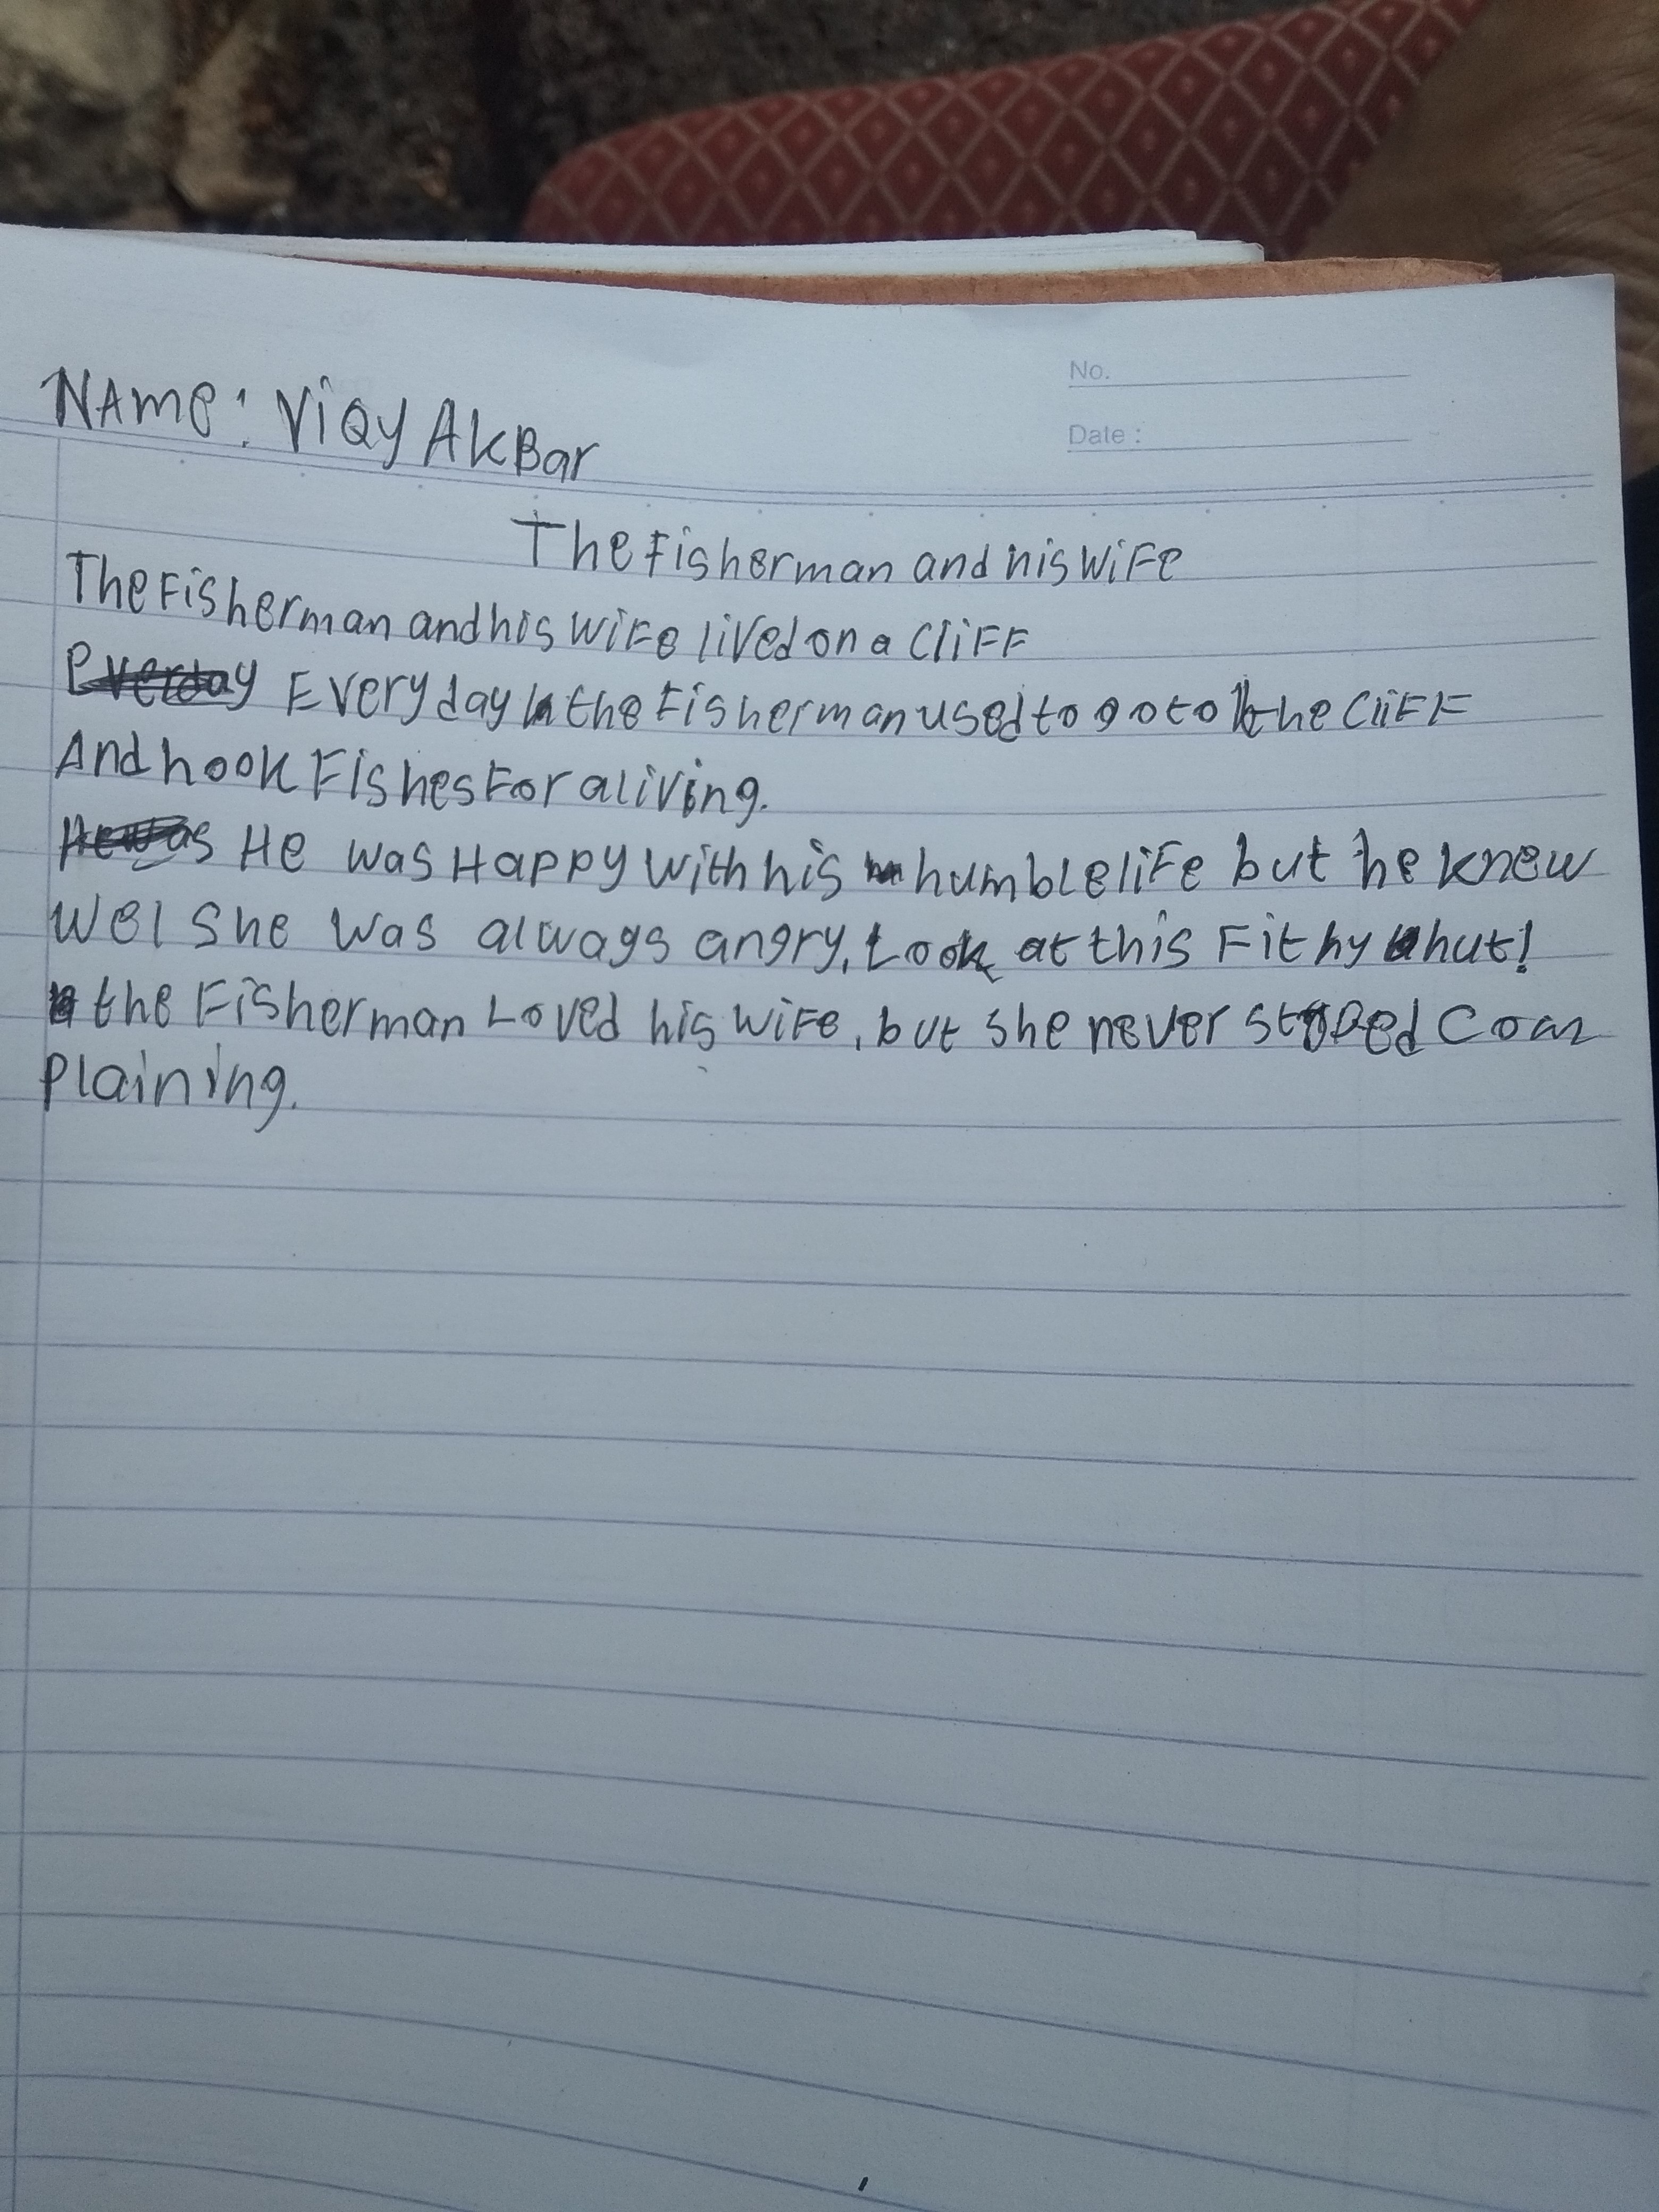 No.
Date :
NAME: ViQY AKBar
The Fisherman and his WiFe
The Fisherman and his WiFe lived on a CliFF
Everday Every day the Fisherman used to go to the CliFF
And hook Fishes For a living.
He was He was Happy With his humble liFe but he knew
Wel She was always angry, Look at this Fithy hut!
the Fisherman Loved his wiFe, but she never stoped Com
Plaining.